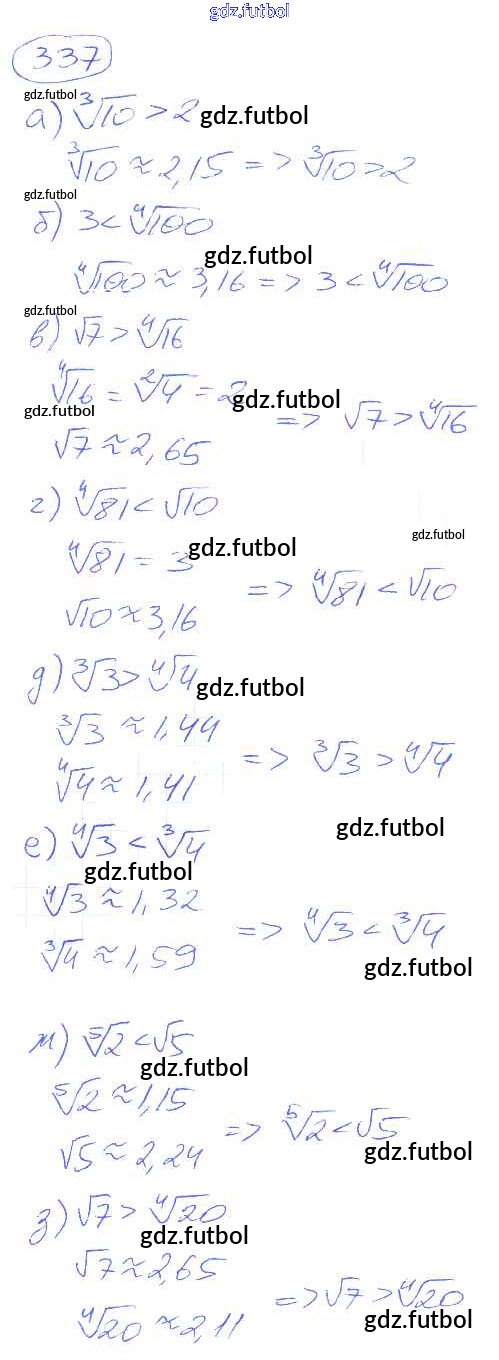 gdz.futbol
337
gdz.futbol
а) ∛10 > 2 gdz.futbol
∛10 ≈ 2,15 => ∛10 > 2
gdz.futbol
б) 3 < ∜100
gdz.futbol
∜100 ≈ 3,16 => 3 < ∜100
gdz.futbol
в) √7 > ∜16
∜16 = ²√4 = 2 gdz.futbol
gdz.futbol
=> √7 > ∜16
√7 ≈ 2,65
г) ∜81 < √10
gdz.futbol
∜81 = 3 gdz.futbol
=> ∜81 < √10
√10 ≈ 3,16
д) ∛3 > ∜4 gdz.futbol
∛3 ≈ 1,44
=> ∛3 > ∜4
∜4 ≈ 1,41
gdz.futbol
е) ∜3 < ∛4
gdz.futbol
∜3 ≈ 1,32
=> ∜3 < ∛4
∛4 ≈ 1,59
gdz.futbol
ж) ⁵√2 < √5
gdz.futbol
⁵√2 ≈ 1,15
=> ⁵√2 < √5
√5 ≈ 2,24 gdz.futbol
з) √7 > ∜20
gdz.futbol
√7 ≈ 2,65
=> √7 > ∜20
∜20 ≈ 2,11 gdz.futbol